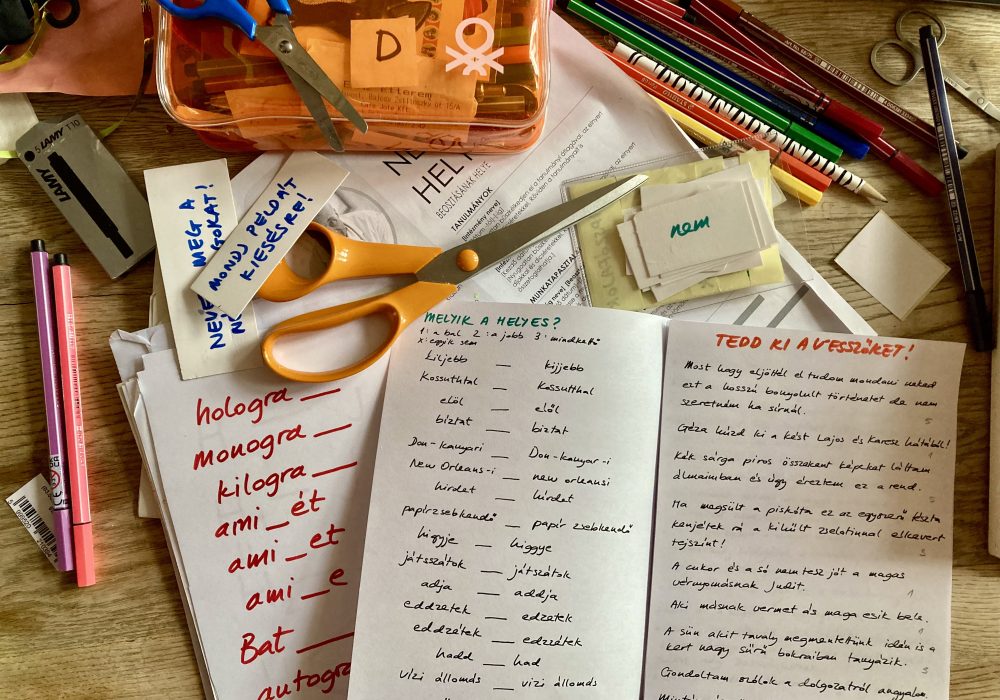 D
LAMY T10
LAMY
MEG A
MONDJ PÉLDÁT
KIESÉSRE!
NE
HELY
BEOSZTÁSÁNAK HELYE
TANULMÁNYOK
nem
hologra __
monogra __
kilogra __
ami _ ét
ami _ et
ami _ e
Bat __
autogra
MELYIK A HELYES?
1: a bal 2: a jobb 3: mindkettő
x: egyik sem
kiljebb — kijjebb
Kossuthtal — Kossutthal
elöl — elől
bíztat — biztat
Don-kanyari — Don-kanyar-i
New Orleans-i — new orleansi
hirdet — hírdet
papírzsebkendő — papír zsebkendő
higyje — higgye
játsszátok — játszátok
adja — addja
eddzetek — edzetek
eddzétek — edzzétek
hadd — had
vízi állomás — vizi állomás
TEDD KI A VESSZŐKET!
Most hogy eljöttél el tudom mondani neked
ezt a hosszú bonyolult történetet de nem
szeretném ha sírnál.
5
Géza húzd ki a kést Lajos és Karesz hátából!
1
Kék sárga piros összekent képeket láttam
álmaimban és úgy éreztem ez a rend.
5
Ha megsült a piskóta ez az egyszerű tészta
kenjétek rá a kihűlt zselatinnal elkevert
tejszínt!
3
A cukor és a só nem tesz jót a magas
vérnyomásnak Judit.
1
Aki másnak vermet ás maga esik bele.
1
A sün akit tavaly megmentettünk idén is a
kert nagy sűrű bokraiban tanyázik.
5
Gondoltam szólok a dolgozatról